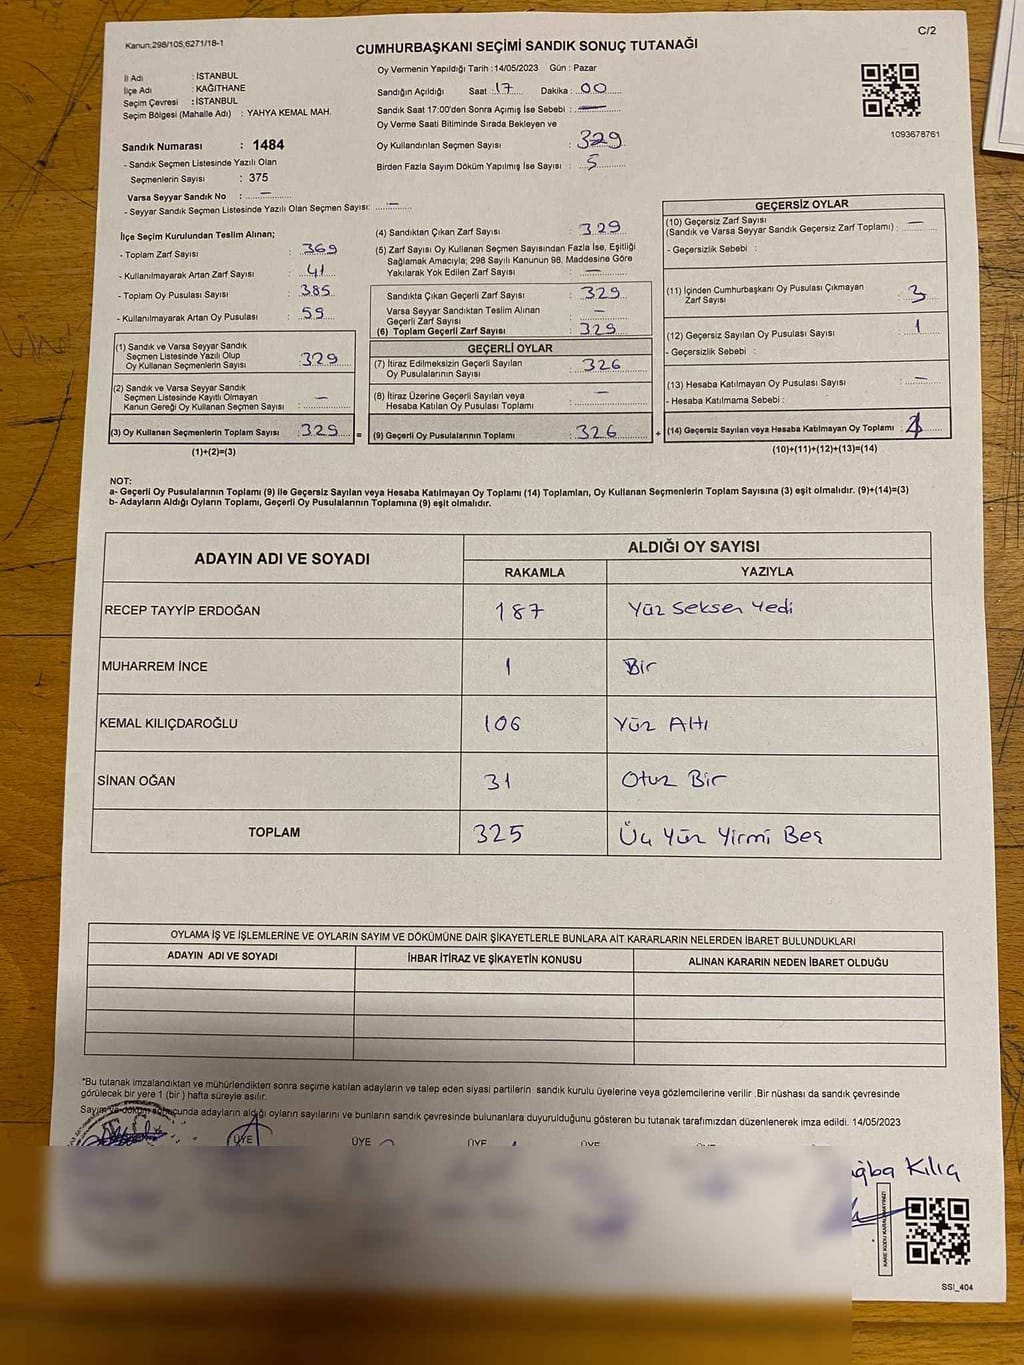 Kanun:298/105;6271/18-1
C/2
CUMHURBAŞKANI SEÇİMİ SANDIK SONUÇ TUTANAĞI
İl Adı : İSTANBUL
İlçe Adı : KAĞITHANE
Seçim Çevresi : İSTANBUL
Seçim Bölgesi (Mahalle Adı) : YAHYA KEMAL MAH.
Sandık Numarası : 1484
- Sandık Seçmen Listesinde Yazılı Olan
Seçmenlerin Sayısı : 375
Varsa Seyyar Sandık No : —
- Seyyar Sandık Seçmen Listesinde Yazılı Olan Seçmen Sayısı: —
Oy Vermenin Yapıldığı Tarih :14/05/2023 Gün : Pazar
Sandığın Açıldığı Saat : 17 Dakika : 00
Sandık Saat 17:00'den Sonra Açımış İse Sebebi : —
Oy Verme Saati Bitiminde Sırada Bekleyen ve
Oy Kullandırılan Seçmen Sayısı : 329
Birden Fazla Sayım Döküm Yapılmış İse Sayısı : 5
1093678761
İlçe Seçim Kurulundan Teslim Alınan;
- Toplam Zarf Sayısı : 369
- Kullanılmayarak Artan Zarf Sayısı : 41
- Toplam Oy Pusulası Sayısı : 385
- Kullanılmayarak Artan Oy Pusulası : 59
(1) Sandık ve Varsa Seyyar Sandık
Seçmen Listesinde Yazılı Olup
Oy Kullanan Seçmenlerin Sayısı : 329
(2) Sandık ve Varsa Seyyar Sandık
Seçmen Listesinde Kayıtlı Olmayan
Kanun Gereği Oy Kullanan Seçmen Sayısı : —
(3) Oy Kullanan Seçmenlerin Toplam Sayısı : 329
(1)+(2)=(3)
(4) Sandıktan Çıkan Zarf Sayısı : 329
(5) Zarf Sayısı Oy Kullanan Seçmen Sayısından Fazla İse, Eşitliği
Sağlamak Amacıyla; 298 Sayılı Kanunun 98. Maddesine Göre
Yakılarak Yok Edilen Zarf Sayısı : —
Sandıkta Çıkan Geçerli Zarf Sayısı : 329
Varsa Seyyar Sandıktan Teslim Alınan
Geçerli Zarf Sayısı : —
(6) Toplam Geçerli Zarf Sayısı : 329
GEÇERLİ OYLAR
(7) İtiraz Edilmeksizin Geçerli Sayılan
Oy Pusulalarının Sayısı : 326
(8) İtiraz Üzerine Geçerli Sayılan veya
Hesaba Katılan Oy Pusulası Toplamı : —
= (9) Geçerli Oy Pusulalarının Toplamı : 326 +
GEÇERSİZ OYLAR
(10) Geçersiz Zarf Sayısı
(Sandık ve Varsa Seyyar Sandık Geçersiz Zarf Toplamı) : —
- Geçersizlik Sebebi :
(11) İçinden Cumhurbaşkanı Oy Pusulası Çıkmayan
Zarf Sayısı : 3
(12) Geçersiz Sayılan Oy Pusulası Sayısı : 1
- Geçersizlik Sebebi :
(13) Hesaba Katılmayan Oy Pusulası Sayısı : —
- Hesaba Katılmama Sebebi :
(14) Geçersiz Sayılan veya Hesaba Katılmayan Oy Toplamı :
(10)+(11)+(12)+(13)=(14)
NOT:
a- Geçerli Oy Pusulalarının Toplamı (9) ile Geçersiz Sayılan veya Hesaba Katılmayan Oy Toplamı (14) Toplamları, Oy Kullanan Seçmenlerin Toplam Sayısına (3) eşit olmalıdır. (9)+(14)=(3)
b- Adayların Aldığı Oyların Toplamı, Geçerli Oy Pusulalarının Toplamına (9) eşit olmalıdır.
ADAYIN ADI VE SOYADI
ALDIĞI OY SAYISI
RAKAMLA YAZIYLA
RECEP TAYYİP ERDOĞAN 187 Yüz Seksen Yedi
MUHARREM İNCE 1 Bir
KEMAL KILIÇDAROĞLU 106 Yüz Altı
SİNAN OĞAN 31 Otuz Bir
TOPLAM 325 Üç Yüz Yirmi Beş
OYLAMA İŞ VE İŞLEMLERİNE VE OYLARIN SAYIM VE DÖKÜMÜNE DAİR ŞİKAYETLERLE BUNLARA AİT KARARLARIN NELERDEN İBARET BULUNDUKLARI
ADAYIN ADI VE SOYADI İHBAR İTİRAZ VE ŞİKAYETİN KONUSU ALINAN KARARIN NEDEN İBARET OLDUĞU
*Bu tutanak imzalandıktan ve mühürlendikten sonra seçime katılan adayların ve talep eden siyasi partilerin sandık kurulu üyelerine veya gözlemcilerine verilir .Bir nüshası da sandık çevresinde
görülecek bir yere 1 (bir ) hafta süreyle asılır.
Sayım ve döküm sonucunda adayların aldığı oyların sayılarını ve bunların sandık çevresinde bulunanlara duyurulduğunu gösteren bu tutanak tarafımızdan düzenlenerek imza edildi. 14/05/2023
ÜYE ÜYE ÜYE ÜYE
ğba Kılıç
KARE KODU KARALAMAYINIZ!
SSI_404